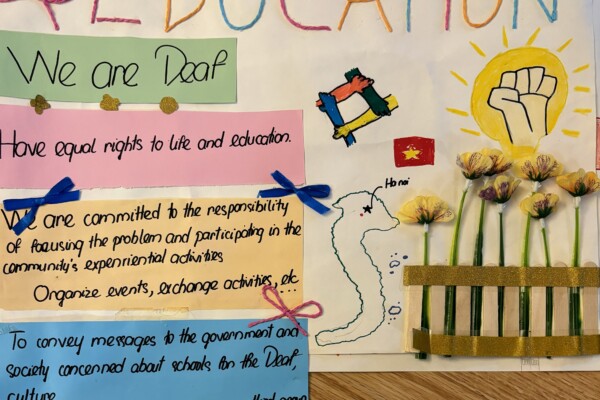 EDUCATION
We are Deaf
Have equal rights to life and education.
We are committed to the responsibility
of focusing the problem and participating in the
community's experiential activities
Organize events, exchange activities, etc...
Ha noi
To convey messages to the government and
society concerned about schools for the Deaf,
culture